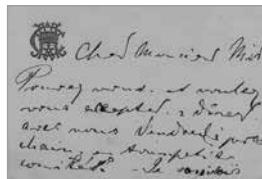 Cher Monsieur
Pouvez vous, et voulez
vous accepter à dîner
avec nous Vendredi pro
chain, en
comité? - Je